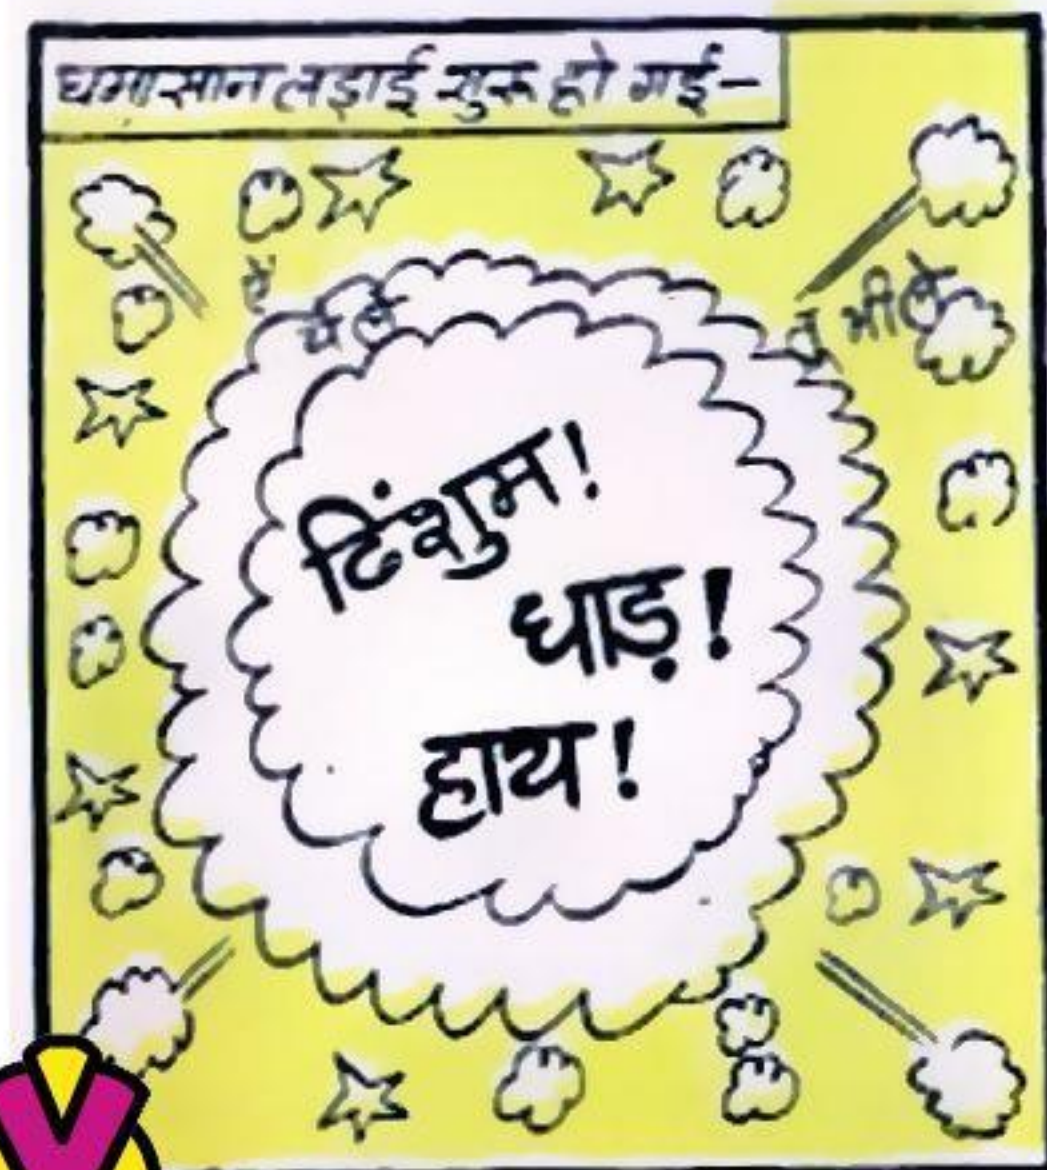 घमासान लड़ाई शुरू हो गई-
ऐं
ये ले
तू भी ले
ढिंशुम!
धाड़!
हाय!